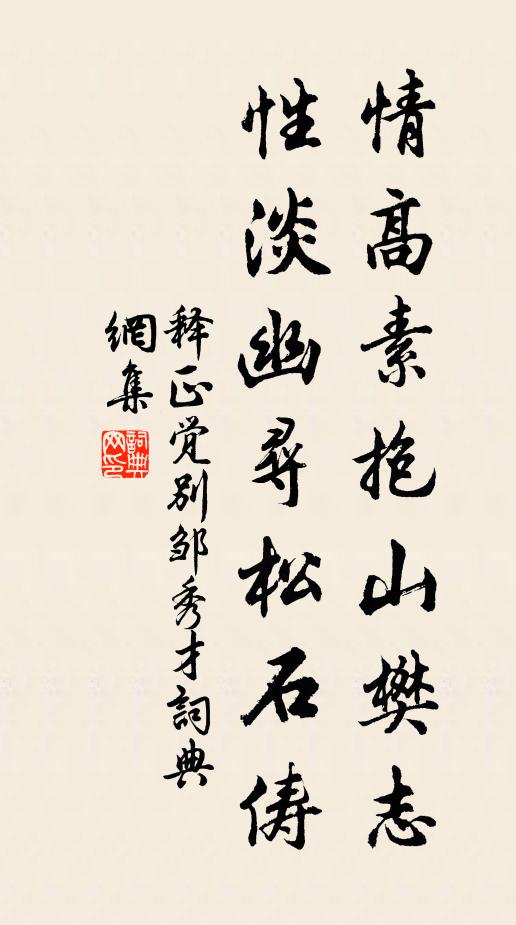 情高素抱山樊志
性淡幽寻松石俦
释正觉别邹秀才詞典
網集
詞典
网印